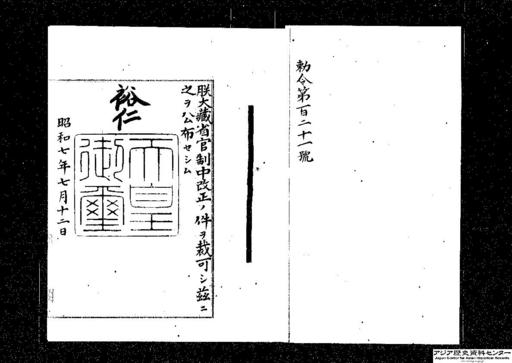 勅令第百二十一號
朕大藏省官制中改正ノ件ヲ裁可シ茲ニ
之ヲ公布セシム
裕仁
天皇御璽
昭和七年七月十二日
アジア歴史資料センター
Japan Center for Asian Historical Records